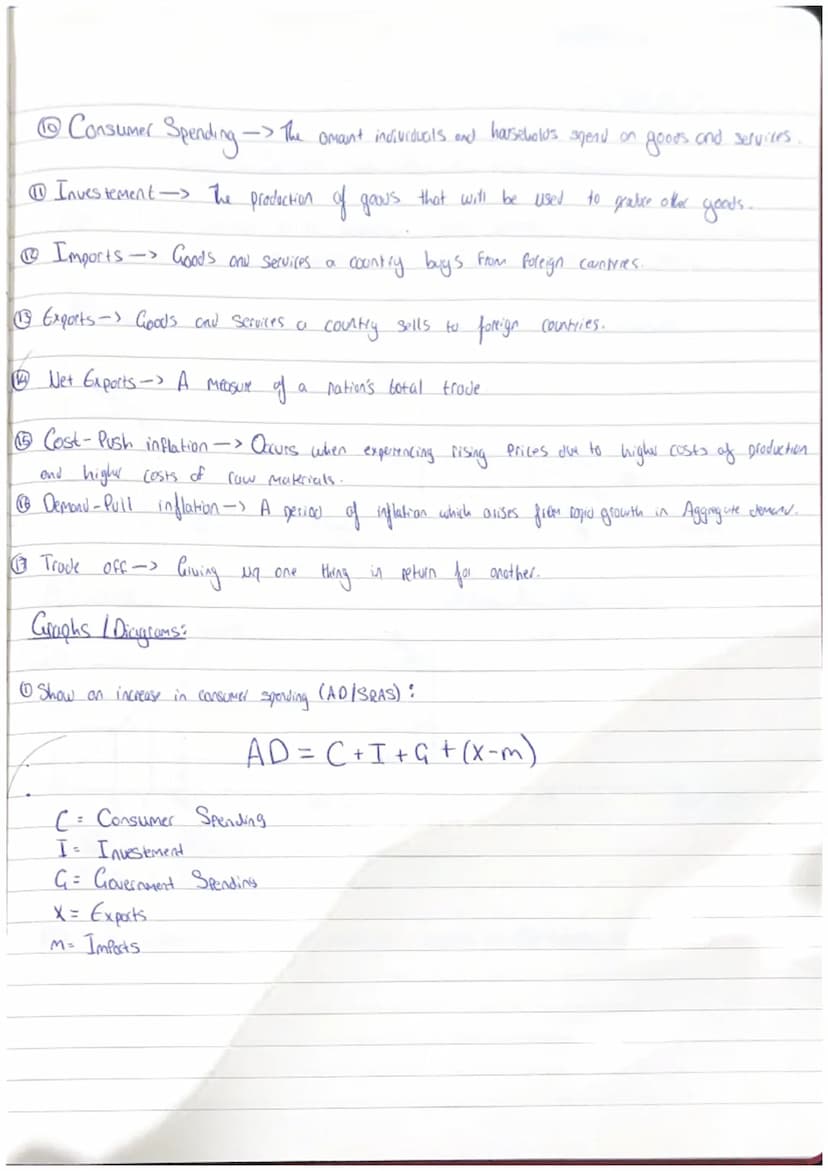 ⑩ Consumer Spending —> The amount individuals and households spend on goods and services.
⑪ Investement —> The production of goods that will be used to produce other goods.
⑫ Imports —> Goods and services a country buys from foreign countries.
⑬ Exports —> Goods and services a country sells to foreign countries.
⑭ Net Exports —> A measure of a nation's total trade
⑮ Cost-Push inflation —> Occurs when experiencing rising prices due to higher costs of production
and higher costs of raw materials.
⑯ Demand-Pull inflation —> A period of inflation which arises from rapid growth in Aggregate demand.
⑰ Trade off —> Giving up one thing in return for another.
Graphs / Diagrams:
① Show an increase in consumer spending (AD/SRAS) :
AD = C + I + G + (X-m)
C = Consumer Spending
I = Investement
G = Government Spending
X = Exports
m = Imports